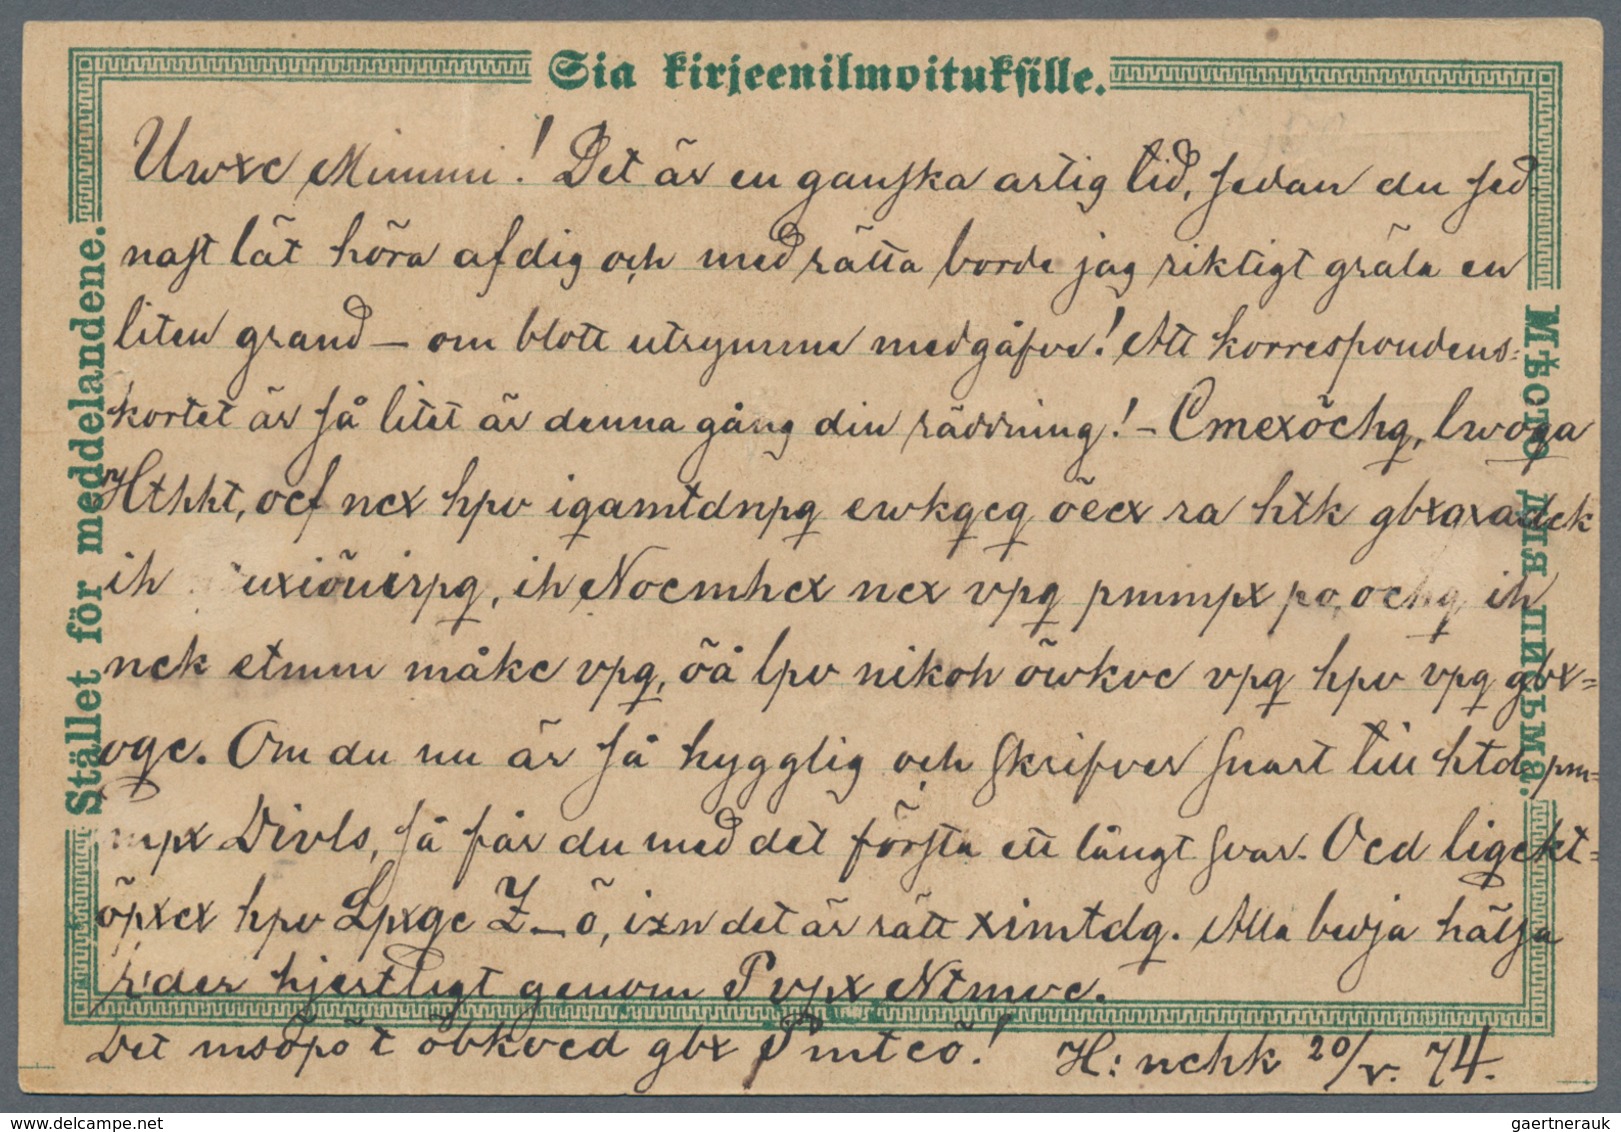 Sia kirjeenilmoituksille.
Stället för meddelandene.
Мѣсто для письма.
Uwxc Mimmi! Det är en ganska artig tid, sedan du sed-
nast lät höra af dig och med rätta borde jag riktigt gräla en
liten grand — om blott utrymme medgåfve! Att korrespondens-
kortet är så litet är denna gång din räddning! — Cmexõchq, lwoqa
Htkkt, ocf ncx hpv iqamtdnpq ewkqcq õecx ra htk gbxqxadck
ih uxiõuirpq, ih Nocmhcx ncx vpq pmmpx po, ochq ih
nck etmm måkc vpq, õå lpv nikoh õwkvc vpq hpv vpq gbx=
oqc. Om du nu är så hygglig och skrifver snart till htd pm=
mpx Divls, så får du med det första ett långt svar. Ocd liqckt=
õpxcx hpv Lpxgc Z—õ, ixn det är rätt ximtdq. Alla bedja hälsa
eder hjertligt genom Pvpx Ntmvc.
Det msõpõt õbkvcd gbx Pmtcõ! H: nchk 20/V. 74.
gaertnerauk@delcampe.net